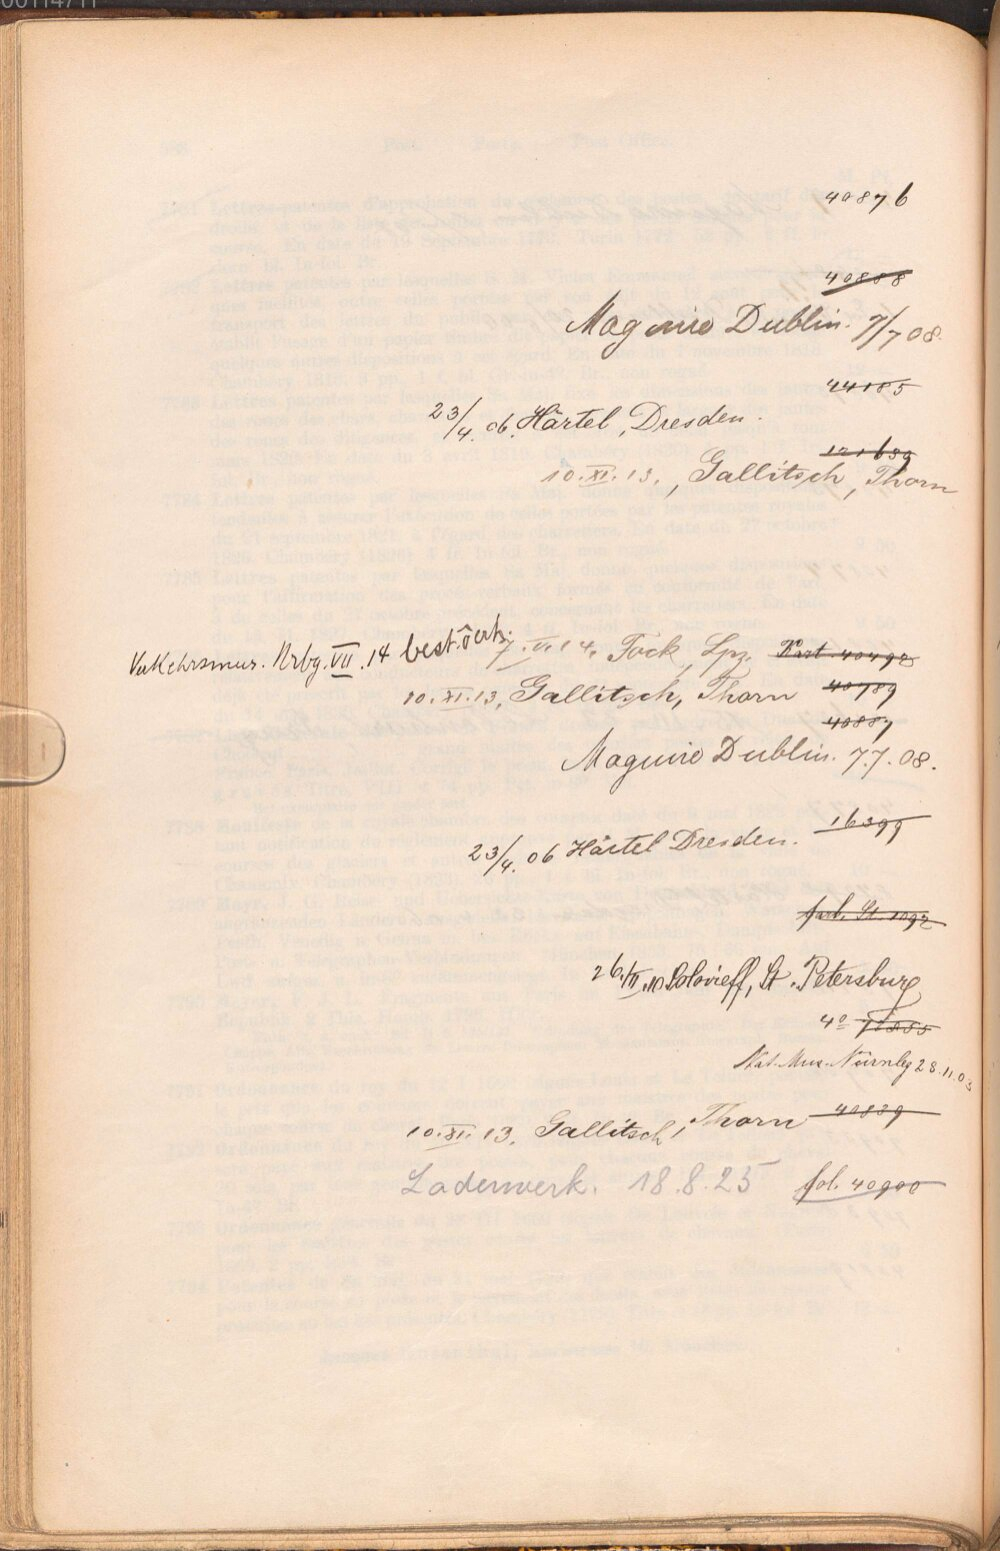 40876
40888
Maguire Dublin. 7/7 08.
44185
23/4. 06. Härtel, Dresden.
121639
10. XI. 13., Gallitsch, Thorn
Verkehrsmus. Nrbg. VII. 14 best.
7. VI. 14. Fock, Lpz. Kart. 40492
10. XI. 13, Gallitsch, Thorn 40789
40887
Maguire Dublin. 7.7.08.
16399
23/4. 06 Härtel Dresden.
farb. St. 1092
26. 10 Solovieff, St. Petersburg
4º
Nat. Mus. Nürnbg 28.11.03
10. XI. 13, Gallitsch, Thorn 40839
Ladenwerk. 18.8.25 fol. 40900